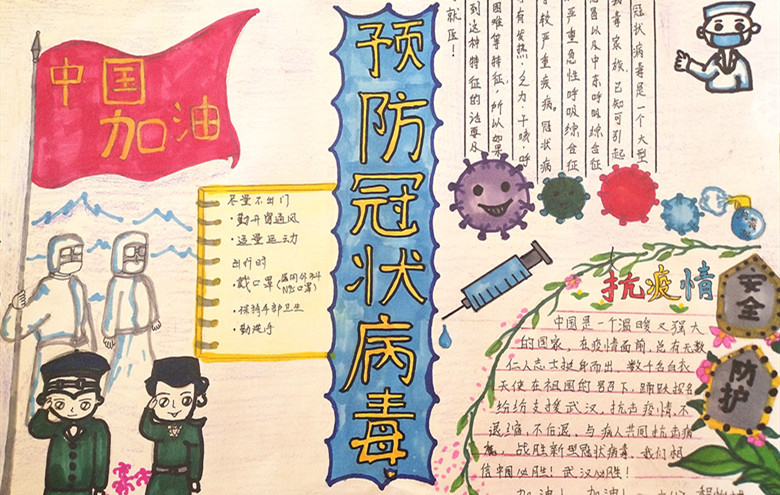 中国
加油
预防冠状病毒
冠状病毒是一个大型
病毒家族,已知可引起
感冒以及中东呼吸综合征
严重急性呼吸综合征
较严重疾病。冠状病
有发热、乏力、干咳、呼
困难等特征,所以如果
到这种特征的话要及
就医!
尽量不出门
·勤开窗通风
·适量运动
出行时
·戴口罩
·保持手部卫生
·勤洗手
抗疫情
安全
防护
中国是一个温暖又强大
的国家,在疫情面前,总有无数
仁人志士挺身而出,数千名白衣
天使在祖国的号召下,踊跃报名
纷纷支援武汉,抗击疫情,不
退缩,不后退,与病人共同抗击病
战胜新型冠状病毒,我们相
信中国必胜!武汉必胜!
加油!加油